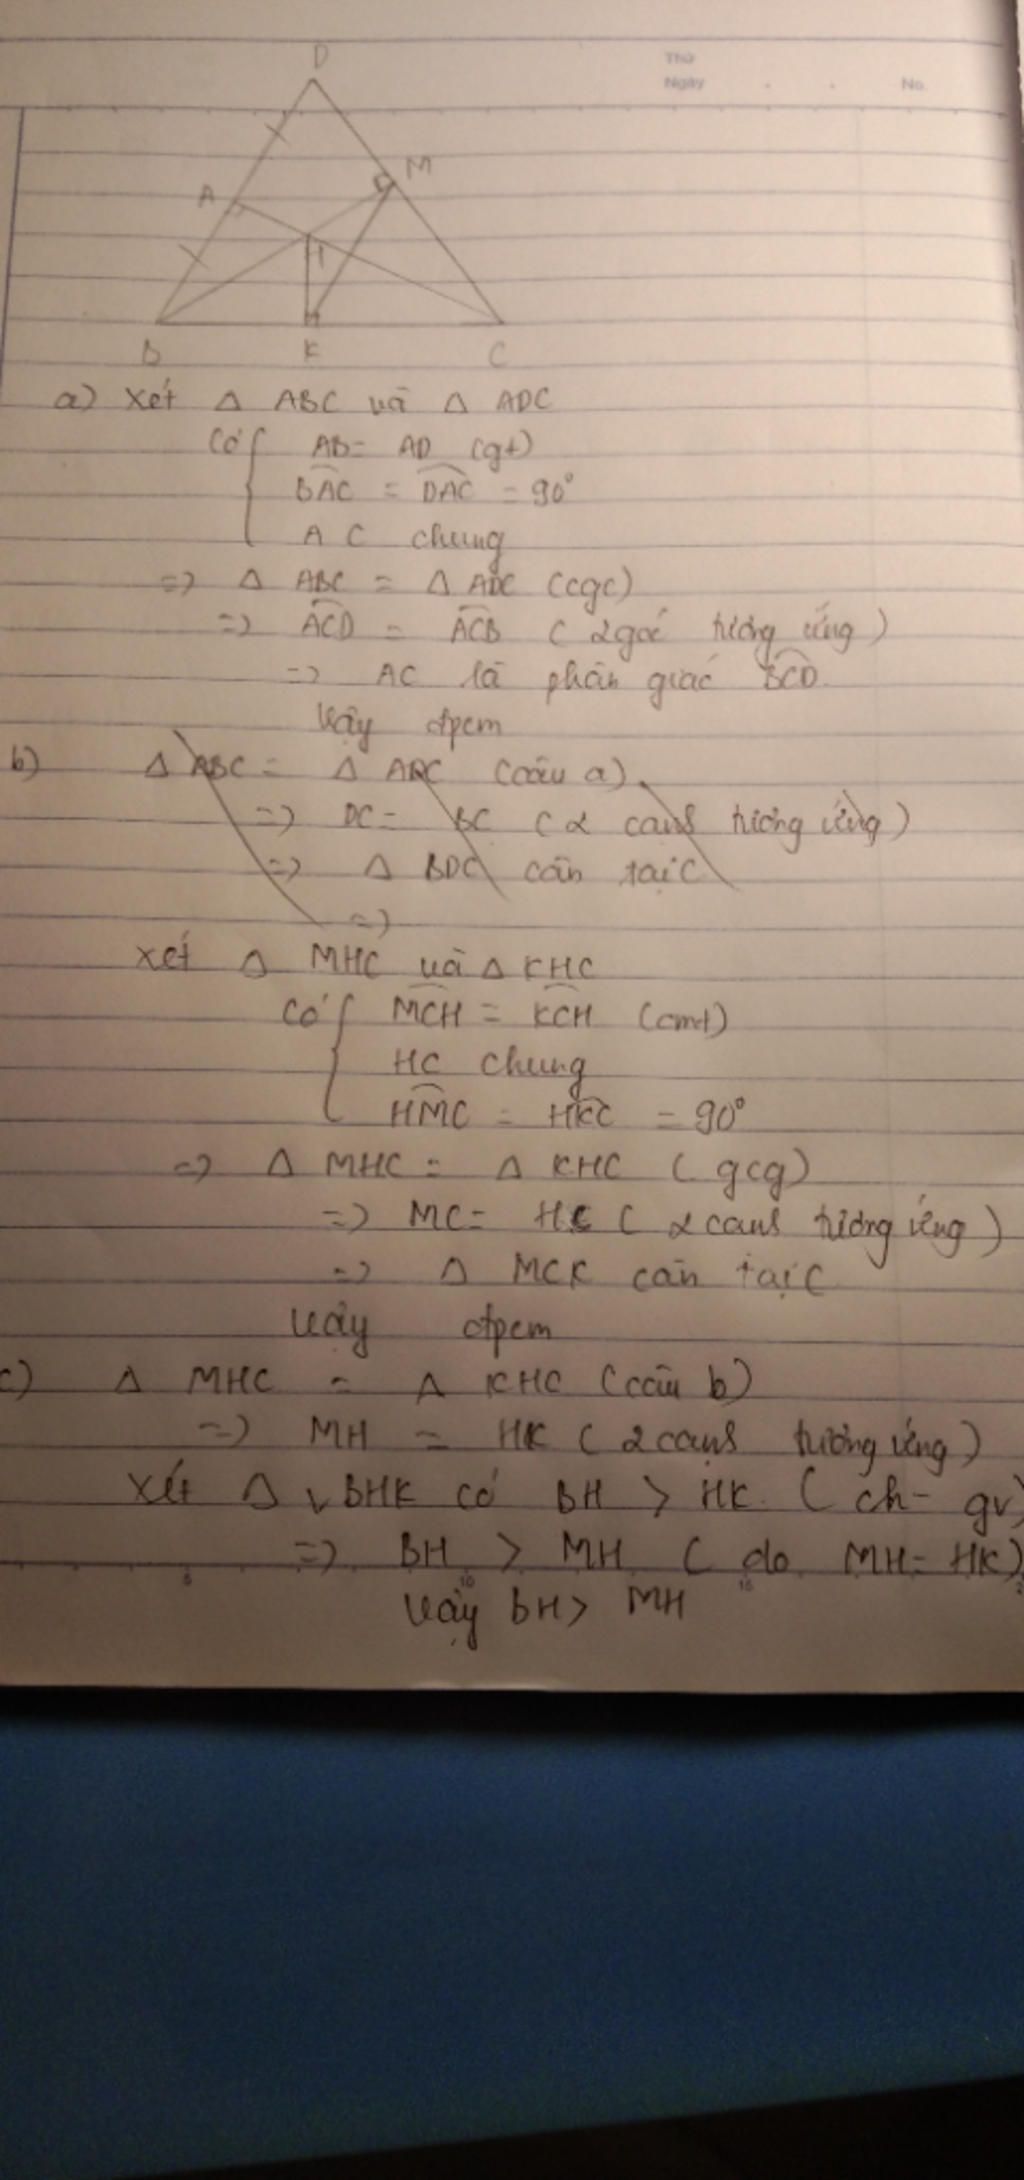 Thứ
Ngày . . No.
D
A
M
H
B K C
a) Xét Δ ABC và Δ ADC
Có { AB = AD (gt)
BAC = DAC = 90°
AC chung
=> Δ ABC = Δ ADC (cgc)
=> ACD = ACB ( 2 góc tương ứng )
=> AC là phân giác BCD.
Vậy đpcm
b) Δ ABC = Δ ADC (câu a)
=> DC = BC ( 2 cạnh tương ứng )
=> Δ BDC cân tại C
=>
Xét Δ MHC và Δ KHC
Có { MCH = KCH (cmt)
HC chung
HMC = HKC = 90°
=> Δ MHC = Δ KHC ( gcg )
=> MC = ( 2 cạnh tương ứng )
=> Δ MCK cân tại C
Vậy đpcm
c) Δ MHC = Δ KHC (câu b)
=> MH = HK ( 2 cạnh tương ứng )
Xét Δ v BHK có BH > HK. ( ch - gv)
=> BH > MH ( do MH = HK)
5 10 15
Vậy BH > MH